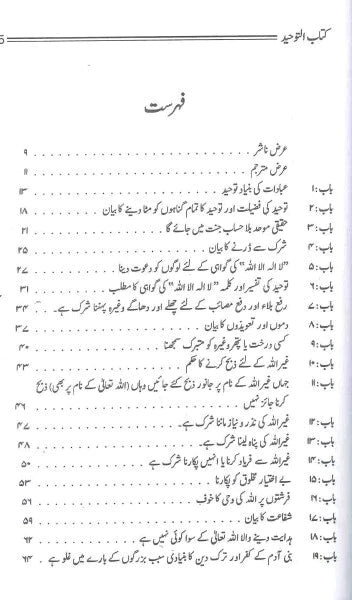 کتاب التوحید 5
فہرست
عرض ناشر ۹
عرض مترجم ۱۱
باب: ۱ عبادات کی بنیاد توحید ۱۳
باب: ۲ توحید کی فضیلت اور توحید کا تمام گناہوں کو مٹا دینے کا بیان ۱۸
باب: ۳ حقیقی موحد بلا حساب جنت میں جائے گا ۲۱
باب: ۴ شرک سے ڈرنے کا بیان ۲۵
باب: ۵ ”لا الہ الا اللہ“ کی گواہی کے لئے لوگوں کو دعوت دینا ۲۷
باب: ۶ توحید کی تفسیر اور کلمہ ”لا الہ الا اللہ“ کی گواہی کا مطلب ۳۱
باب: ۷ رفع بلاء اور دفع مصائب کے لئے چھلے اور دھاگے وغیرہ پہننا شرک ہے۔ ۳۴
باب: ۸ دموں اور تعویذوں کا بیان ۳۷
باب: ۹ کسی درخت یا پتھر وغیرہ کو متبرک سمجھنا ۴۰
باب: ۱۰ غیر اللہ کے لئے ذبح کرنے کا حکم ۴۳
باب: ۱۱ جہاں غیر اللہ کے نام پر جانور ذبح کئے جائیں وہاں (اللہ تعالیٰ کے نام پر بھی) ذبح
کرنا جائز نہیں ۴۶
باب: ۱۲ غیر اللہ کی نذر و نیاز ماننا شرک ہے۔ ۴۷
باب: ۱۳ غیر اللہ کی پناہ لینا شرک ہے۔ ۴۸
باب: ۱۴ غیر اللہ سے فریاد کرنا یا انہیں پکارنا شرک ہے ۵۰
باب: ۱۵ بے اختیار مخلوق کو پکارنا ۵۳
باب: ۱۶ فرشتوں پر اللہ کی وحی کا خوف ۵۶
باب: ۱۷ شفاعت کا بیان ۵۹
باب: ۱۸ ہدایت دینے والا اللہ تعالیٰ کے سوا کوئی نہیں ہے ۶۲
باب: ۱۹ بنی آدم کے کفر اور ترک دین کا بنیادی سبب بزرگوں کے بارے میں غلو ہے ۶۴